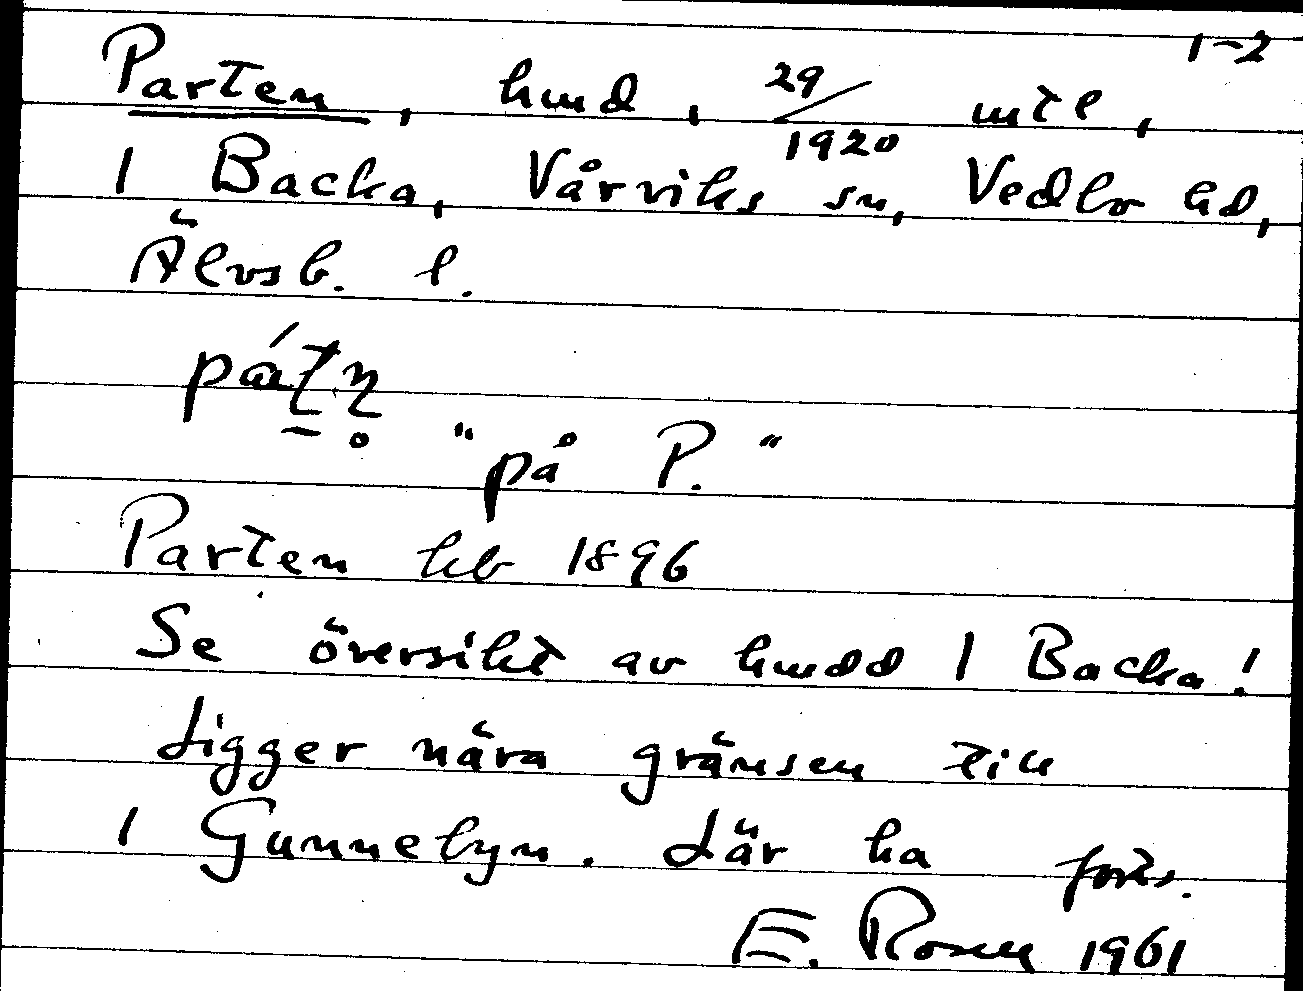 1-2
Parten, hmd, 29/1920 mtl,
1 Backa, Vårviks sn, Vedbo hd,
Älvsb. l.
"på P."
Parten lcb 1896
Se översikt av hmdd 1 Backa!
Ligger nära gränsen till
1 Gunnebyn. Lär ha forts.
E. Rosen 1961